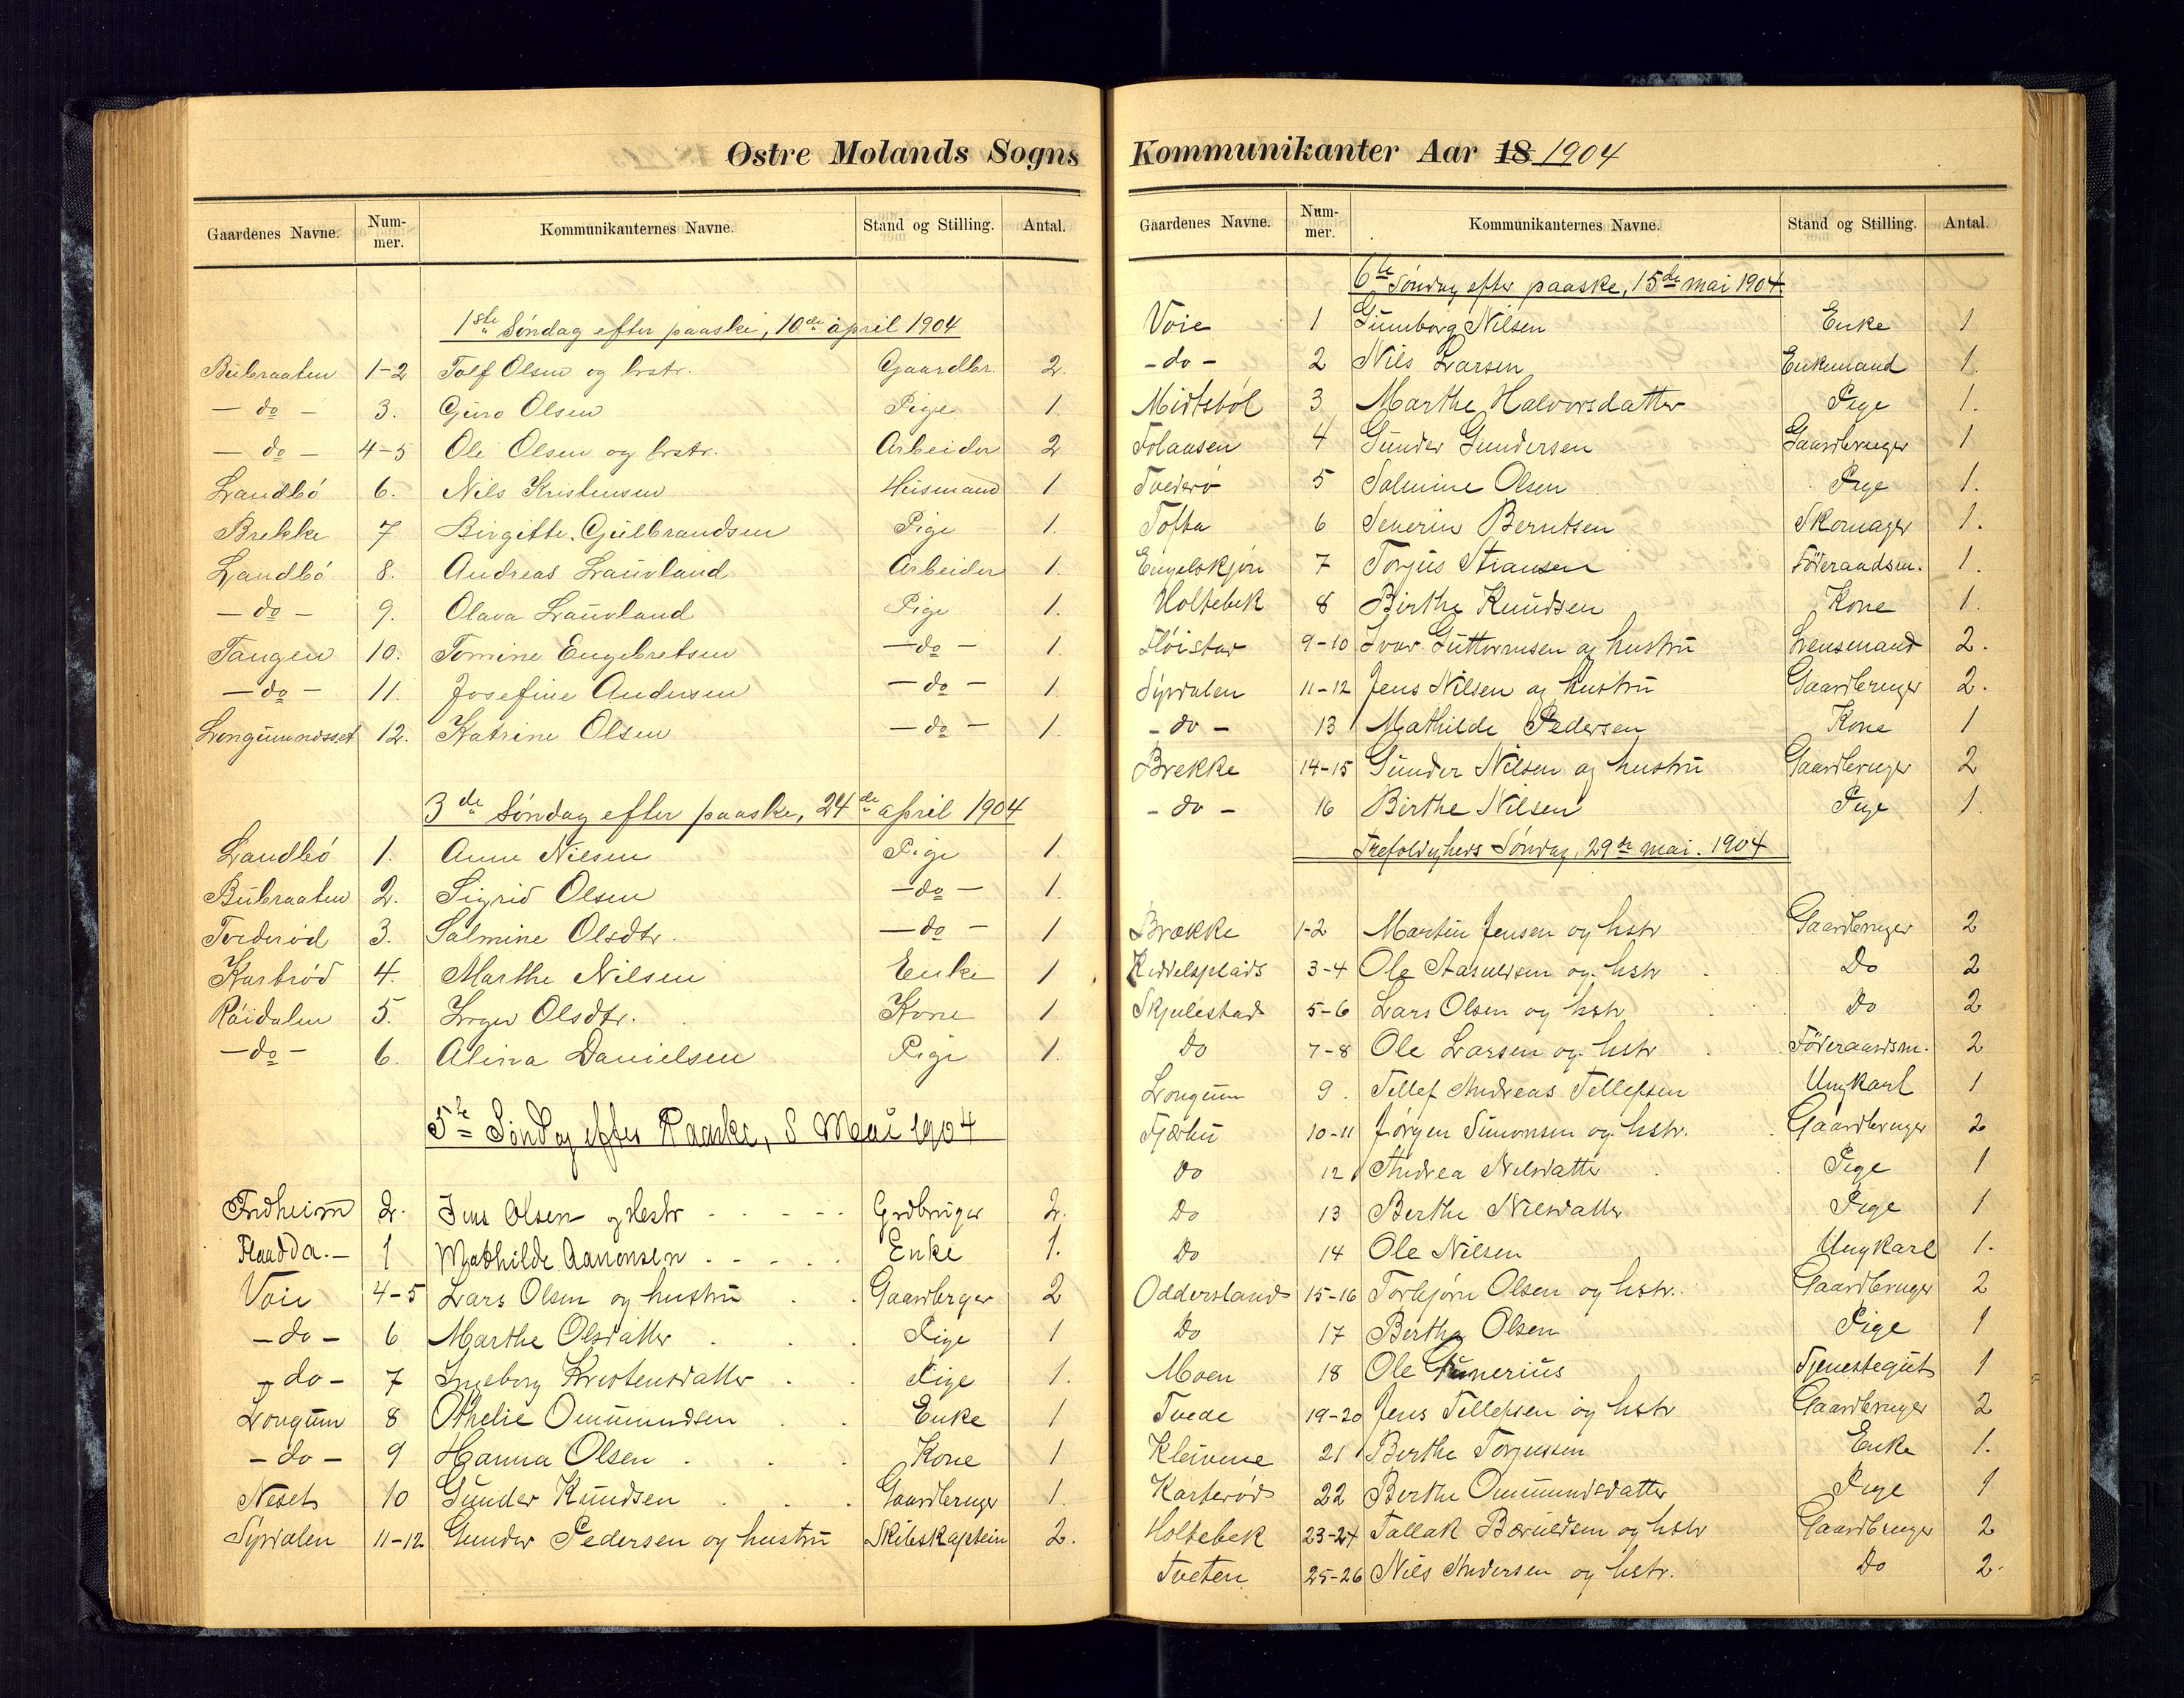 Østre Molands Sogns
Gaardenes Navne. Num-mer. Kommunikanternes Navne. Stand og Stilling. Antal.
1ste Søndag efter paaske, 10de april 1904
Bubraaten 1-2 Tolf Olsen og hstr. Gaardbr. 2.
- do - 3. Guro Olsen Pige 1.
- do - 4-5 Ole Olsen og hstr. Arbeider 2
Landbö 6. Nils Kristensen Husmand 1
Brekke 7 Birgitte Gulbrandsen Pige 1.
Landbö 8. Andreas Lauvland Arbeider 1.
- do - 9. Olava Lauvland Pige 1.
Tangen 10. Tomine Engebretsen - do - 1.
- do - 11. Josefine Andersen - do - 1.
Longumordsset 12. Katrine Olsen - do - 1.
3de Søndag efter paaske, 24de april 1904
Landbö 1. Anne Nilsen Pige 1.
Bubraaten 2. Sigrid Olsen - do - 1.
Tvederød 3. Salmine Olsdtr. - do - 1
Karbrød 4. Marthe Nilsen Enke 1
Röidalen 5. Inger Olsdtr. Kone 1
- do - 6. Alina Danielsen Pige 1.
5te Søndag efter Paaske, 8 Mai 1904
Fredheim 2. Jens Olsen og Hestr Grdbruger 2.
Flaadda.- 1 Mathilde Aanonsen Enke 1.
Voie 4-5 Lars Olsen og hustru Gaardbrger 2
- do - 6 Marthe Olsdatter Pige 1
- do - 7 Ingeborg Kristensdatter Pige 1.
Longum 8 Othelie Ommundsen Enke 1
- do - 9 Hanna Olsen Kone 1
Neset 10 Gunder Knudsen Gaardbruger 1.
Syrdalen 11-12 Gunder Pedersen og hustru Skibskaptein 2.
Kommunikanter Aar 18 1904
Gaardenes Navne. Num-mer. Kommunikanternes Navne. Stand og Stilling. Antal.
6te Søndag efter paaske, 15de mai 1904.
Voie 1 Gunnborg Nilsen Enke 1
- do - 2 Nils Larsen Enkemand 1.
Midtsböl 3 Marthe Halvorsdatter Pige 1.
Folaasen 4 Gunder Gundersen Gaardbruger 1
Tvederø 5 Salmine Olsen Pige 1.
Tofta 6 Severin Berntsen Skomager 1.
Engelskjøn 7 Torjus Stiansen Föderaadsm. 1.
Holtebek 8 Birthe Knudsen Kone 1.
Fløistad 9-10 Ivar Guttormsen og hustru Lensmand 2.
Syrdalen 11-12 Jens Nilsen og hustru Gaardbruger 2.
- do - 13 Mathilde Pedersen Kone 1
Brekke 14-15 Gunder Nilsen og hustru Gaardbruger 2
- do - 16 Birthe Nilsen Pige 1.
Trefoldigheds Søndag, 29de mai. 1904
Brække 1-2 Martin Jensen og hstr Gaardbruger 2
Kiddelsplads 3-4 Ole Aasulsen og hstr Do 2
Skjulestad 5-6 Lars Olsen og hstr Do 2
Do 7-8 Ole Larsen og hstr Föderaadsm. 2
Longum 9. Tellef Andreas Tellefsen Ungkarl 1
Fjærbu 10-11 Jørgen Simonsen og hstr. Gaardbruger 2
Do 12 Andrea Nilsdatter Pige 1
Do 13 Berthe Nilsdatter Pige 1
Do 14 Ole Nilsen Ungkarl 1.
Oddersland 15-16 Torbjørn Olsen og hstr. Gaardbruger 2
Do 17 Berthe Olsen Pige 1
Moen 18 Ole Gunerius Tjenestegut 1
Tvede 19-20 Jens Tellefsen og hstr Gaardbruger 2
Kleivene 21 Berthe Torjussen Enke 1.
Karterød 22 Berthe Ommundsdatter Pige 1
Holtebek 23-24 Tallak Bærulsen og hstr Gaardbruger 2
Tveten 25-26 Nils Andersen og hstr. Do 2.